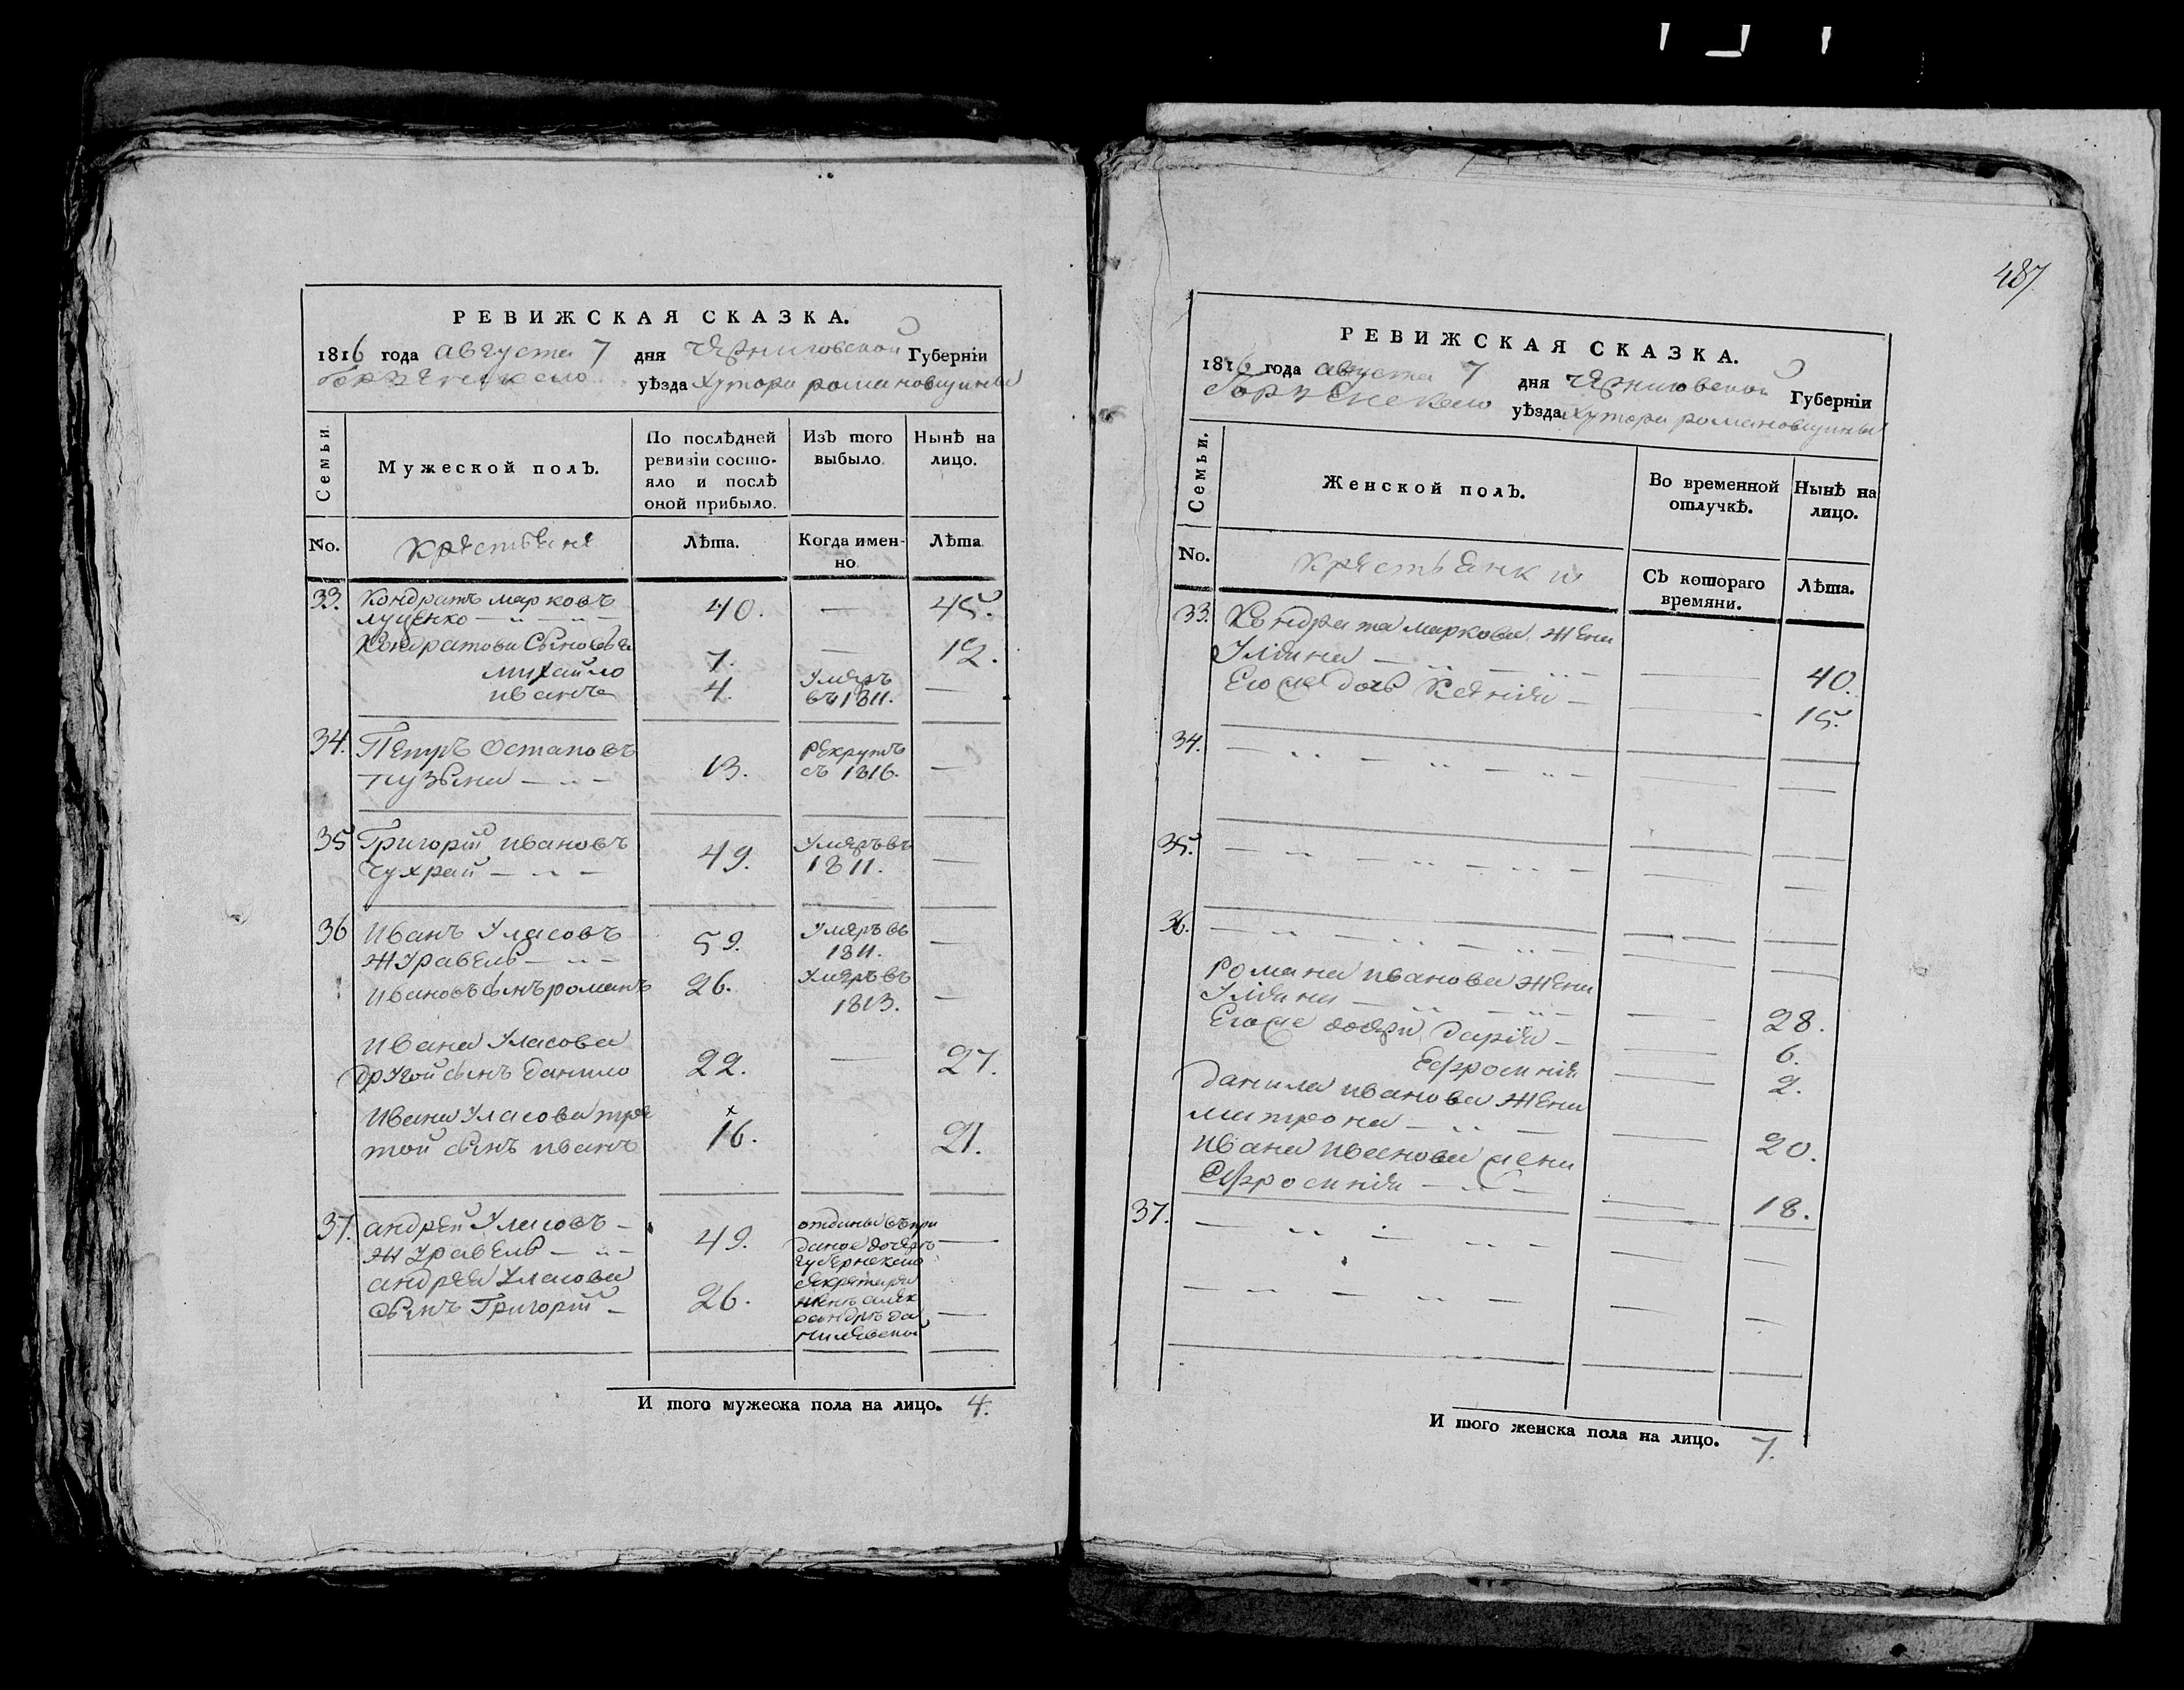 487
РЕВИЖСКАЯ СКАЗКА.
1816 года августа 7 дня Черниговской Губерніи
Борзенского уѣзда Хутора романовщины
Семьи.
Мужеской полЪ.
По послѣдней ревизіи состояло и послѣ оной прибыло.
ИзЪ того выбыло.
Нынѣ на лицо.
No.
крестьяне
Лѣта.
Когда именно.
Лѣта
33. Кондратъ марковъ
луценко — 40. — 45.
Кондратови Сыновья
михайло 7. — 12.
иванъ 4. Умеръ въ 1811. —
34. Петръ Остаповъ
пузына — 13. рекрутъ съ 1816. —
35 Григорій ивановъ
Чухрай — 49. Умеръ въ 1811. —
36 иванъ Уласовъ
Журавель — 59. Умеръ въ 1811. —
ивановъ сынъ романъ 26. Умеръ въ 1813. —
ивана Уласова
другой сынъ данило 22. — 27.
ивана Уласова тре
той сынъ иванъ 16. 21.
37. андрей Уласовъ —
Журавель — 49. отданы въ при
даное дочерѣ —
губернского
андрея Уласова секретаря
сынъ Григорій — 26. алек
сандрѣ да —
нилевской
И того мужеска пола на лицо. 4.
РЕВИЖСКАЯ СКАЗКА.
1816 года августа 7 дня Черниговской Губерніи
Борзенского уѣзда Хутора романовщины
Семьи.
Женской полЪ.
Во временной отлучкѣ.
Нынѣ на лицо.
No.
крестьянки
СЪ котораго времяни.
Лѣта.
33. Кондрата маркова жена
Уліяна — 40.
Егоже дочь Ксенія — 15.
34. —
35. —
36. —
романа иванова жена
Уліяна — 28.
Егоже дочери дарія — 6.
Ефросинія 2.
данила иванова жена
матрона — 20.
ивана иванова жена
Ефросинія — 18.
37. —
И того женска пола на лицо. 7.